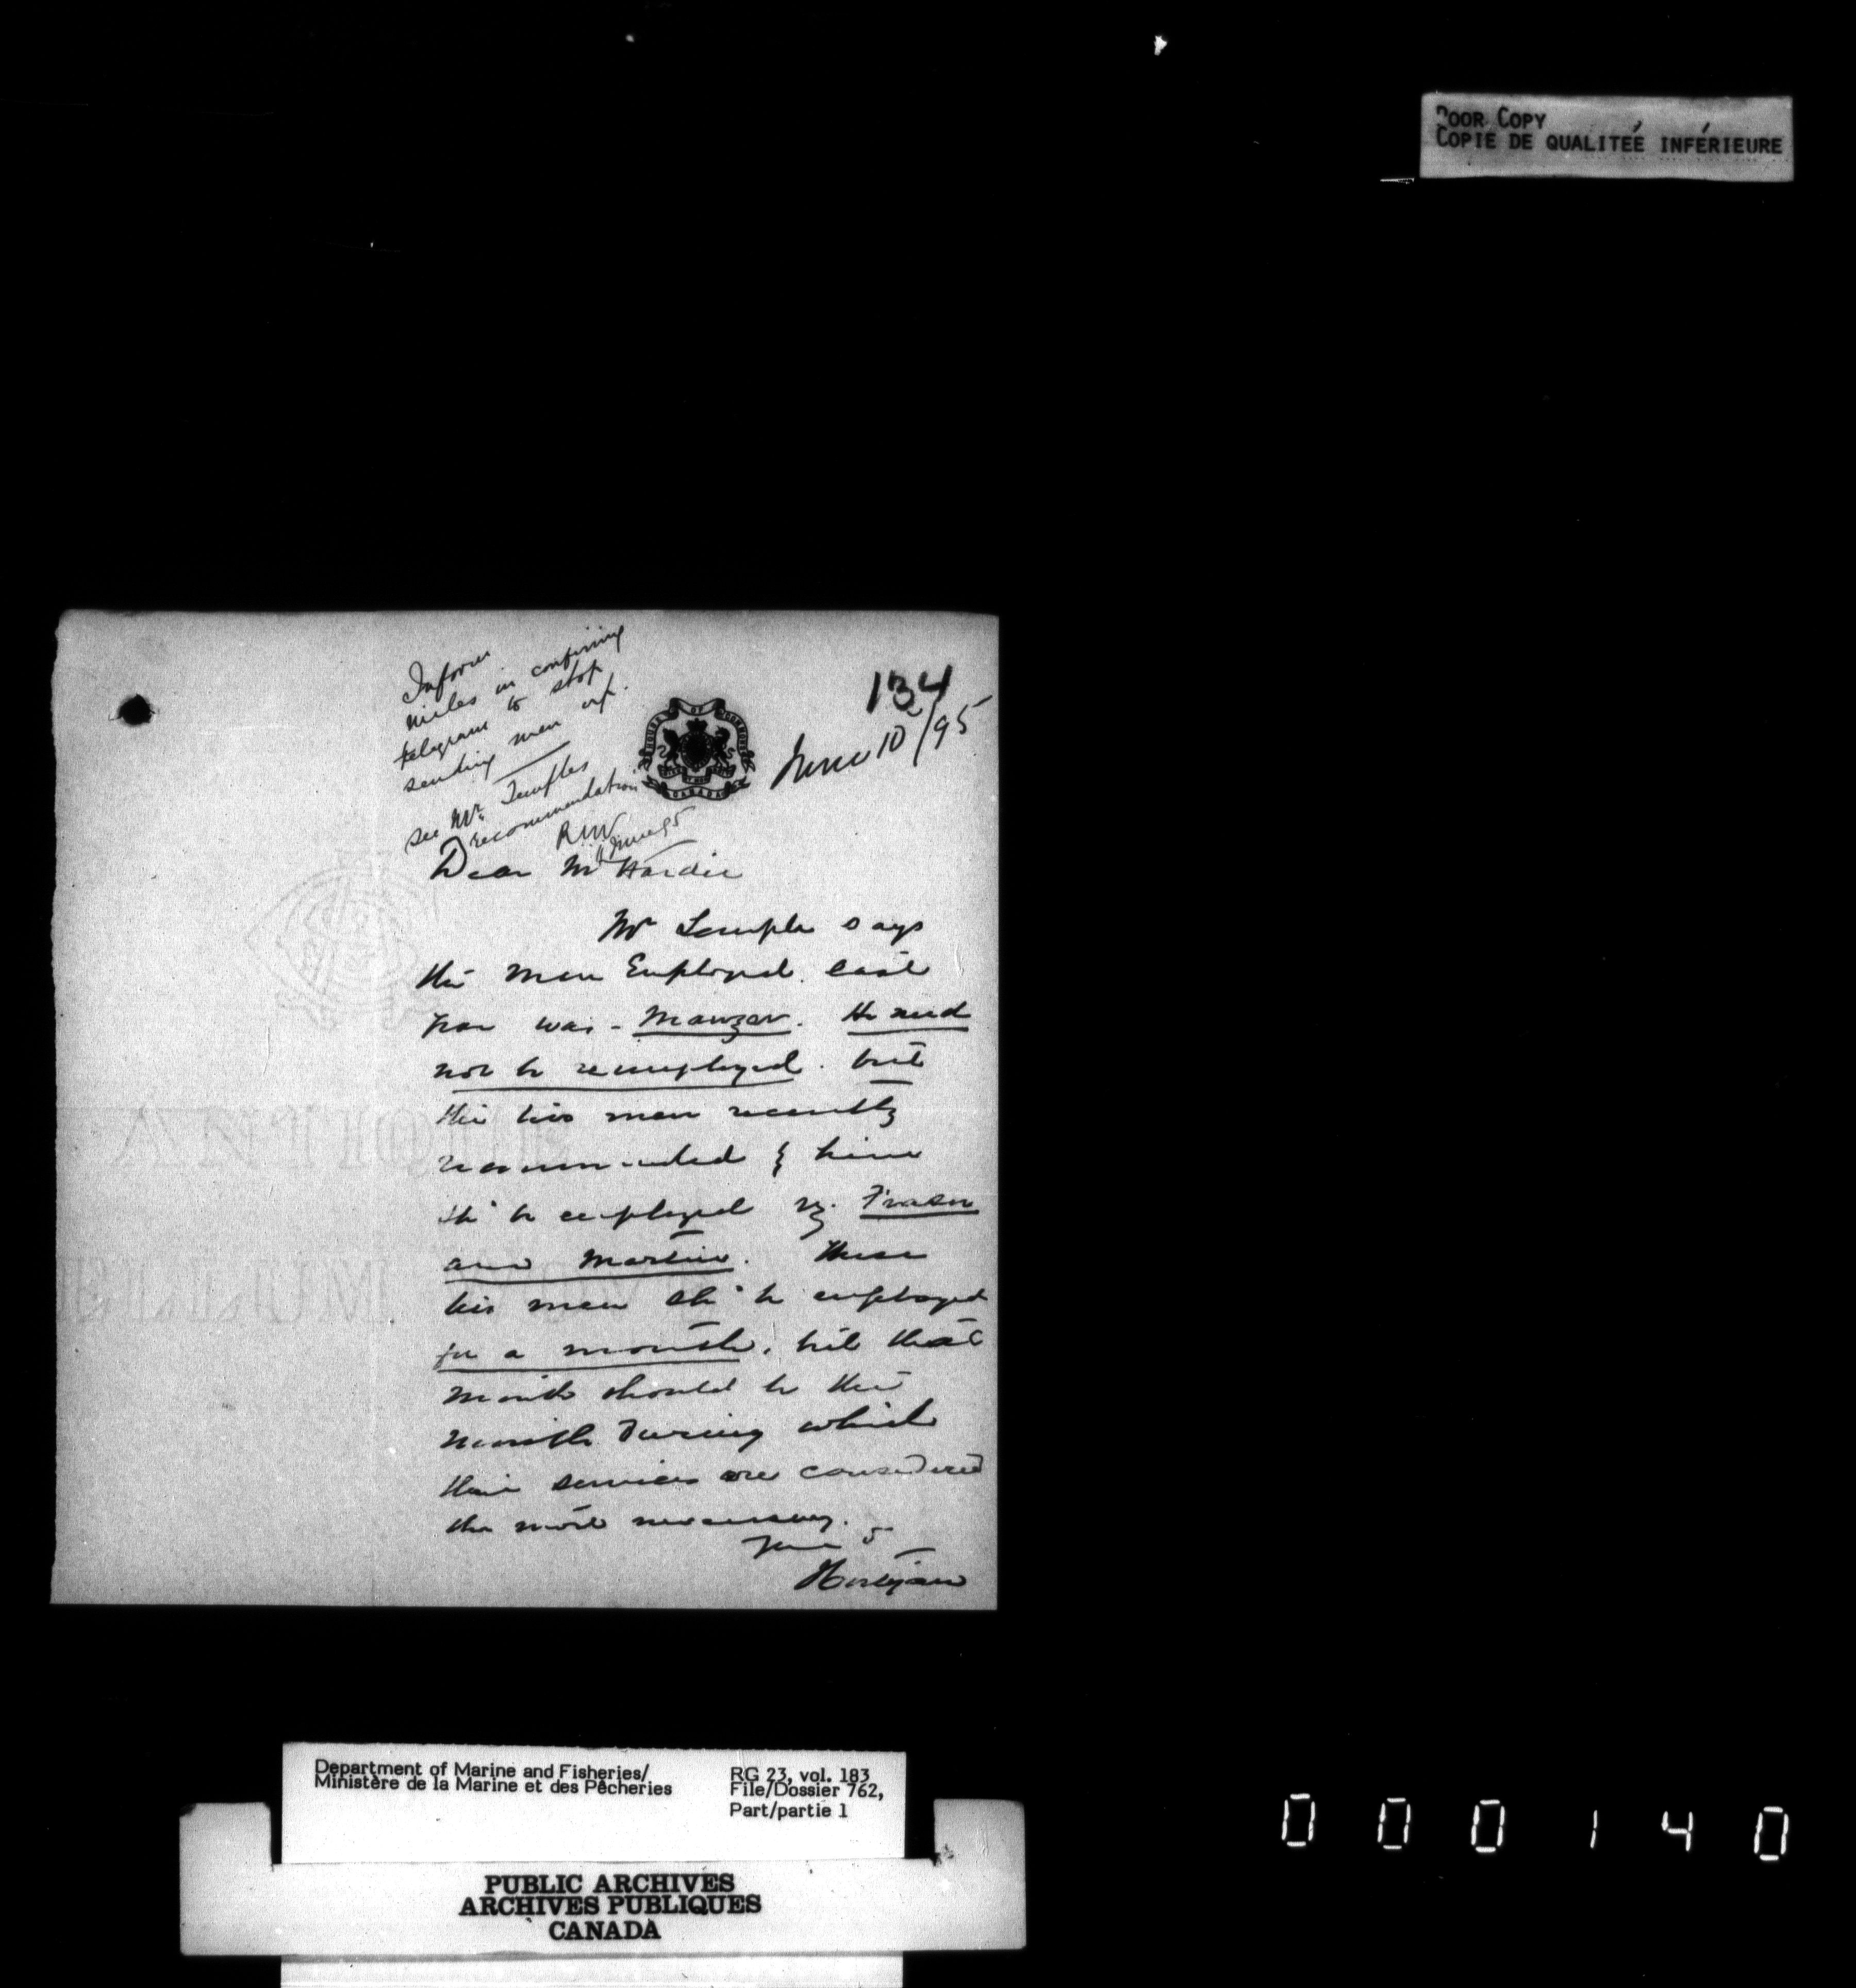 POOR COPY
COPIE DE QUALITEÉ INFÉRIEURE
134
June 10/95
Inform
Miles in confirming
telegram to stop
sending men up.
see Mr. Temples
recommendation
RW
June 95
HOUSE OF COMMONS
CANADA
Dear Mr Hardie
Mr Temple says
the man Employed last
year was - Mawzer. He need
not be reemployed. but
the two men recently
recommended by him
shd be employed vz. Fraser
and Martin. These
two men shd be employed
for a month, but that
month should be the
month during which
their services are considered
the most necessary.
Department of Marine and Fisheries/
Ministère de la Marine et des Pêcheries
RG 23, vol. 183
File/Dossier 762,
Part/partie 1
PUBLIC ARCHIVES
ARCHIVES PUBLIQUES
CANADA
000140